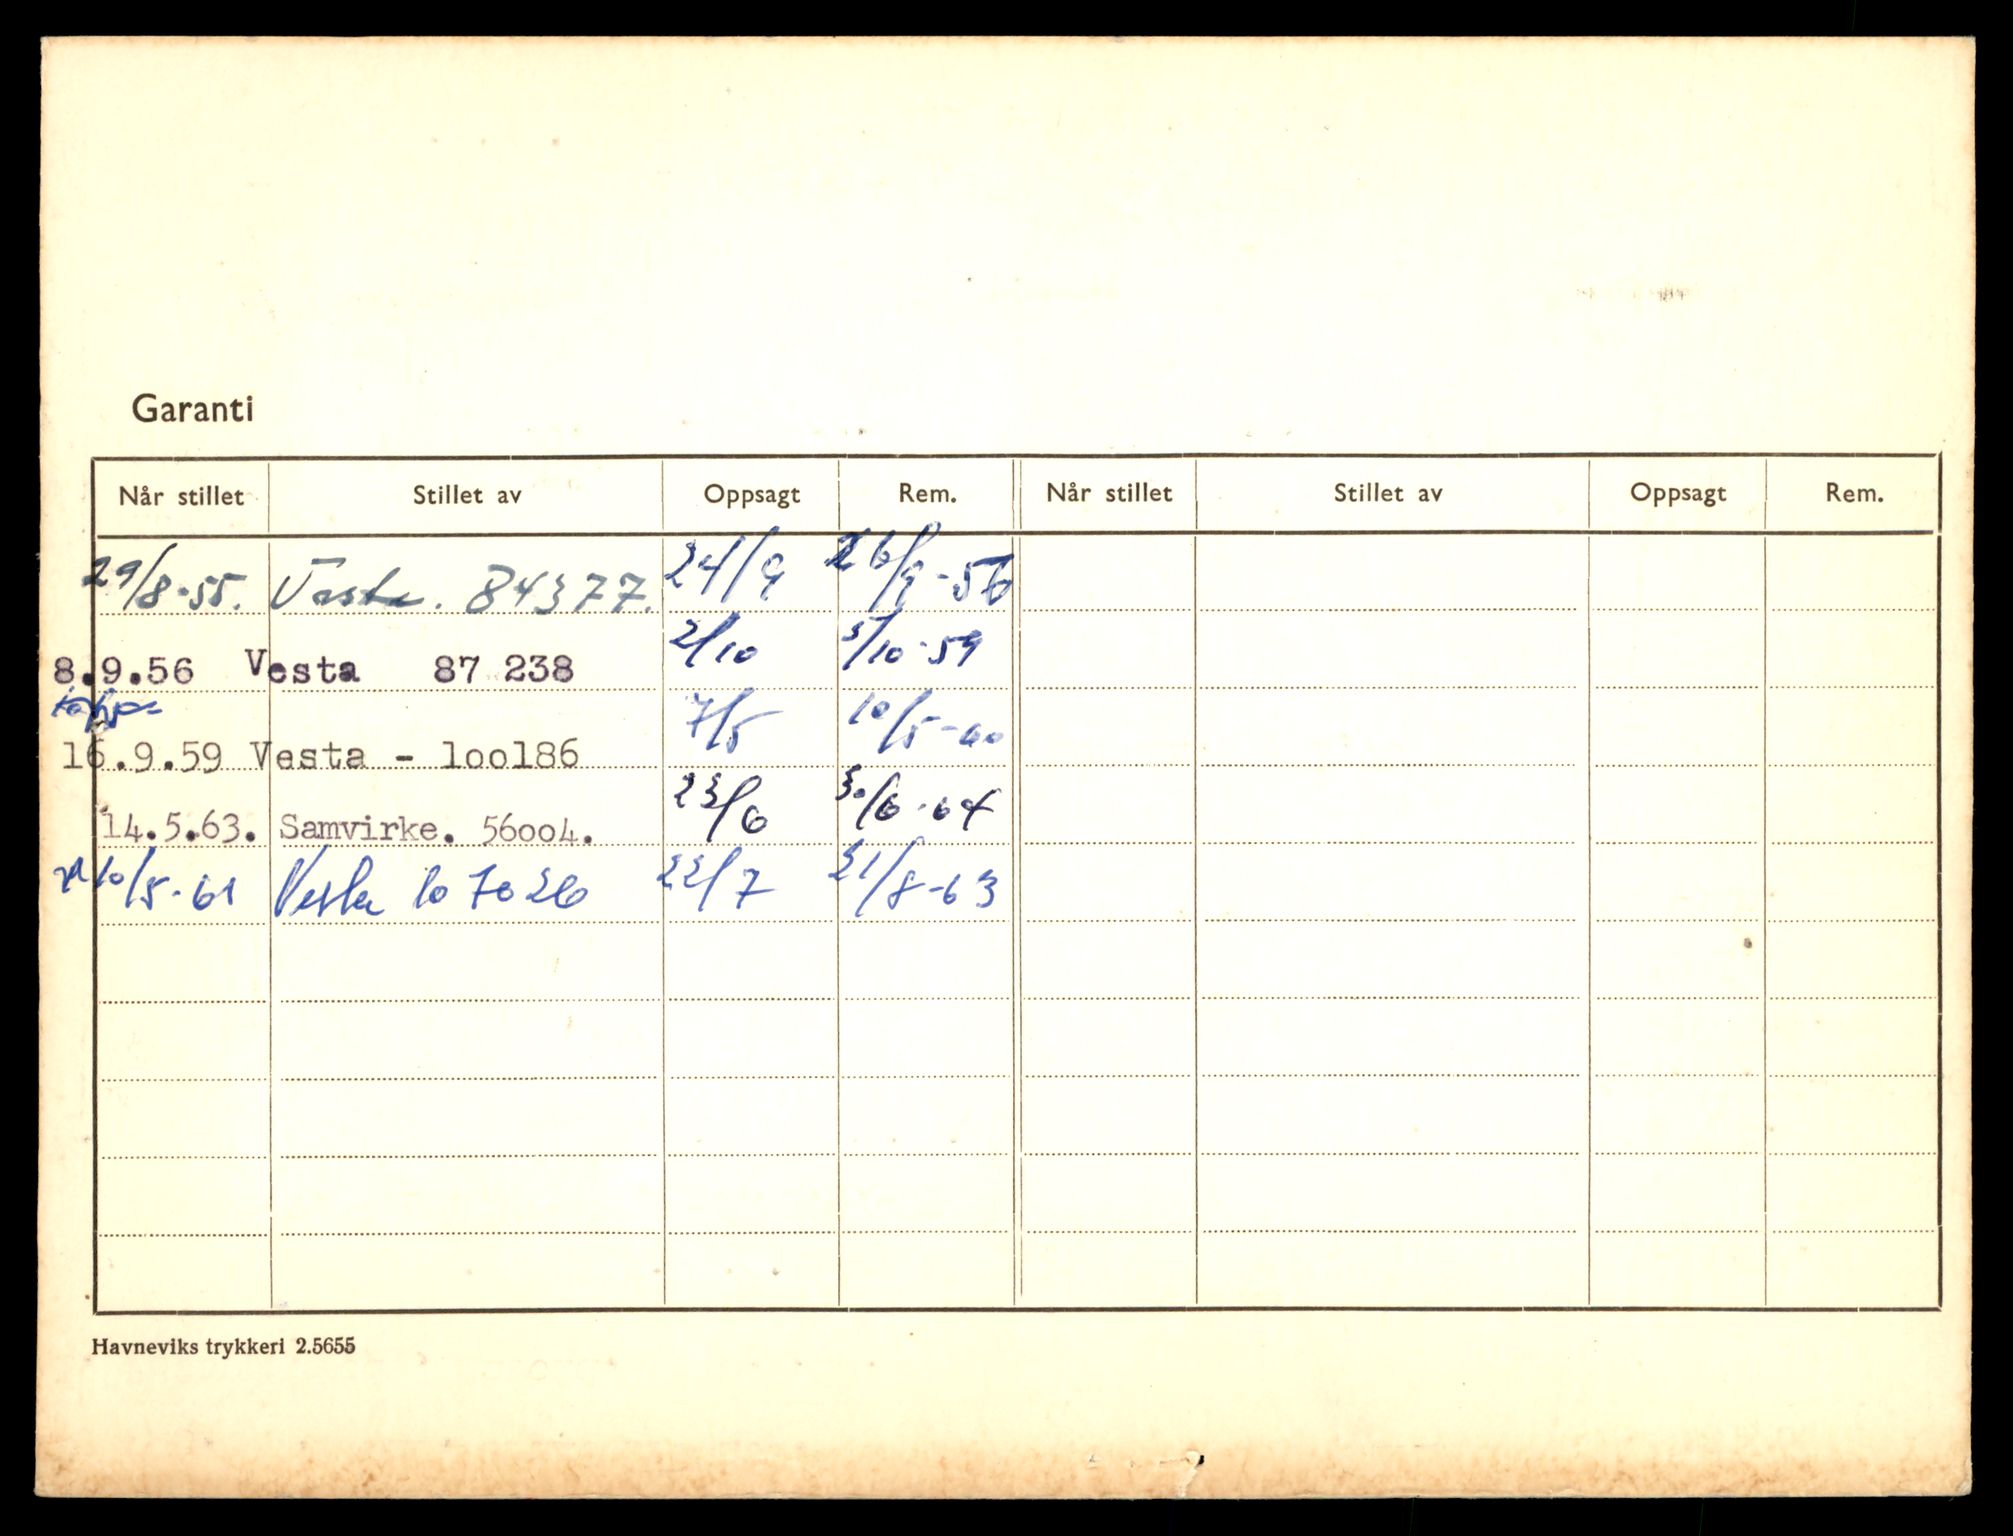 Garanti
Når stillet Stillet av Oppsagt Rem. Når stillet Stillet av Oppsagt Rem.
29/8-55. Vesta. 84377. 24/9 26/9-56
8.9.56 Vesta 87 238 2/10 5/10-59
16.9.59 Vesta - loo186 7/5 10/5-60
14.5.63. Samvirke. 56oo4. 23/6 30/6-64
10/5-61 Vesta 107026 22/7 21/8-63
Havneviks trykkeri 2.5655